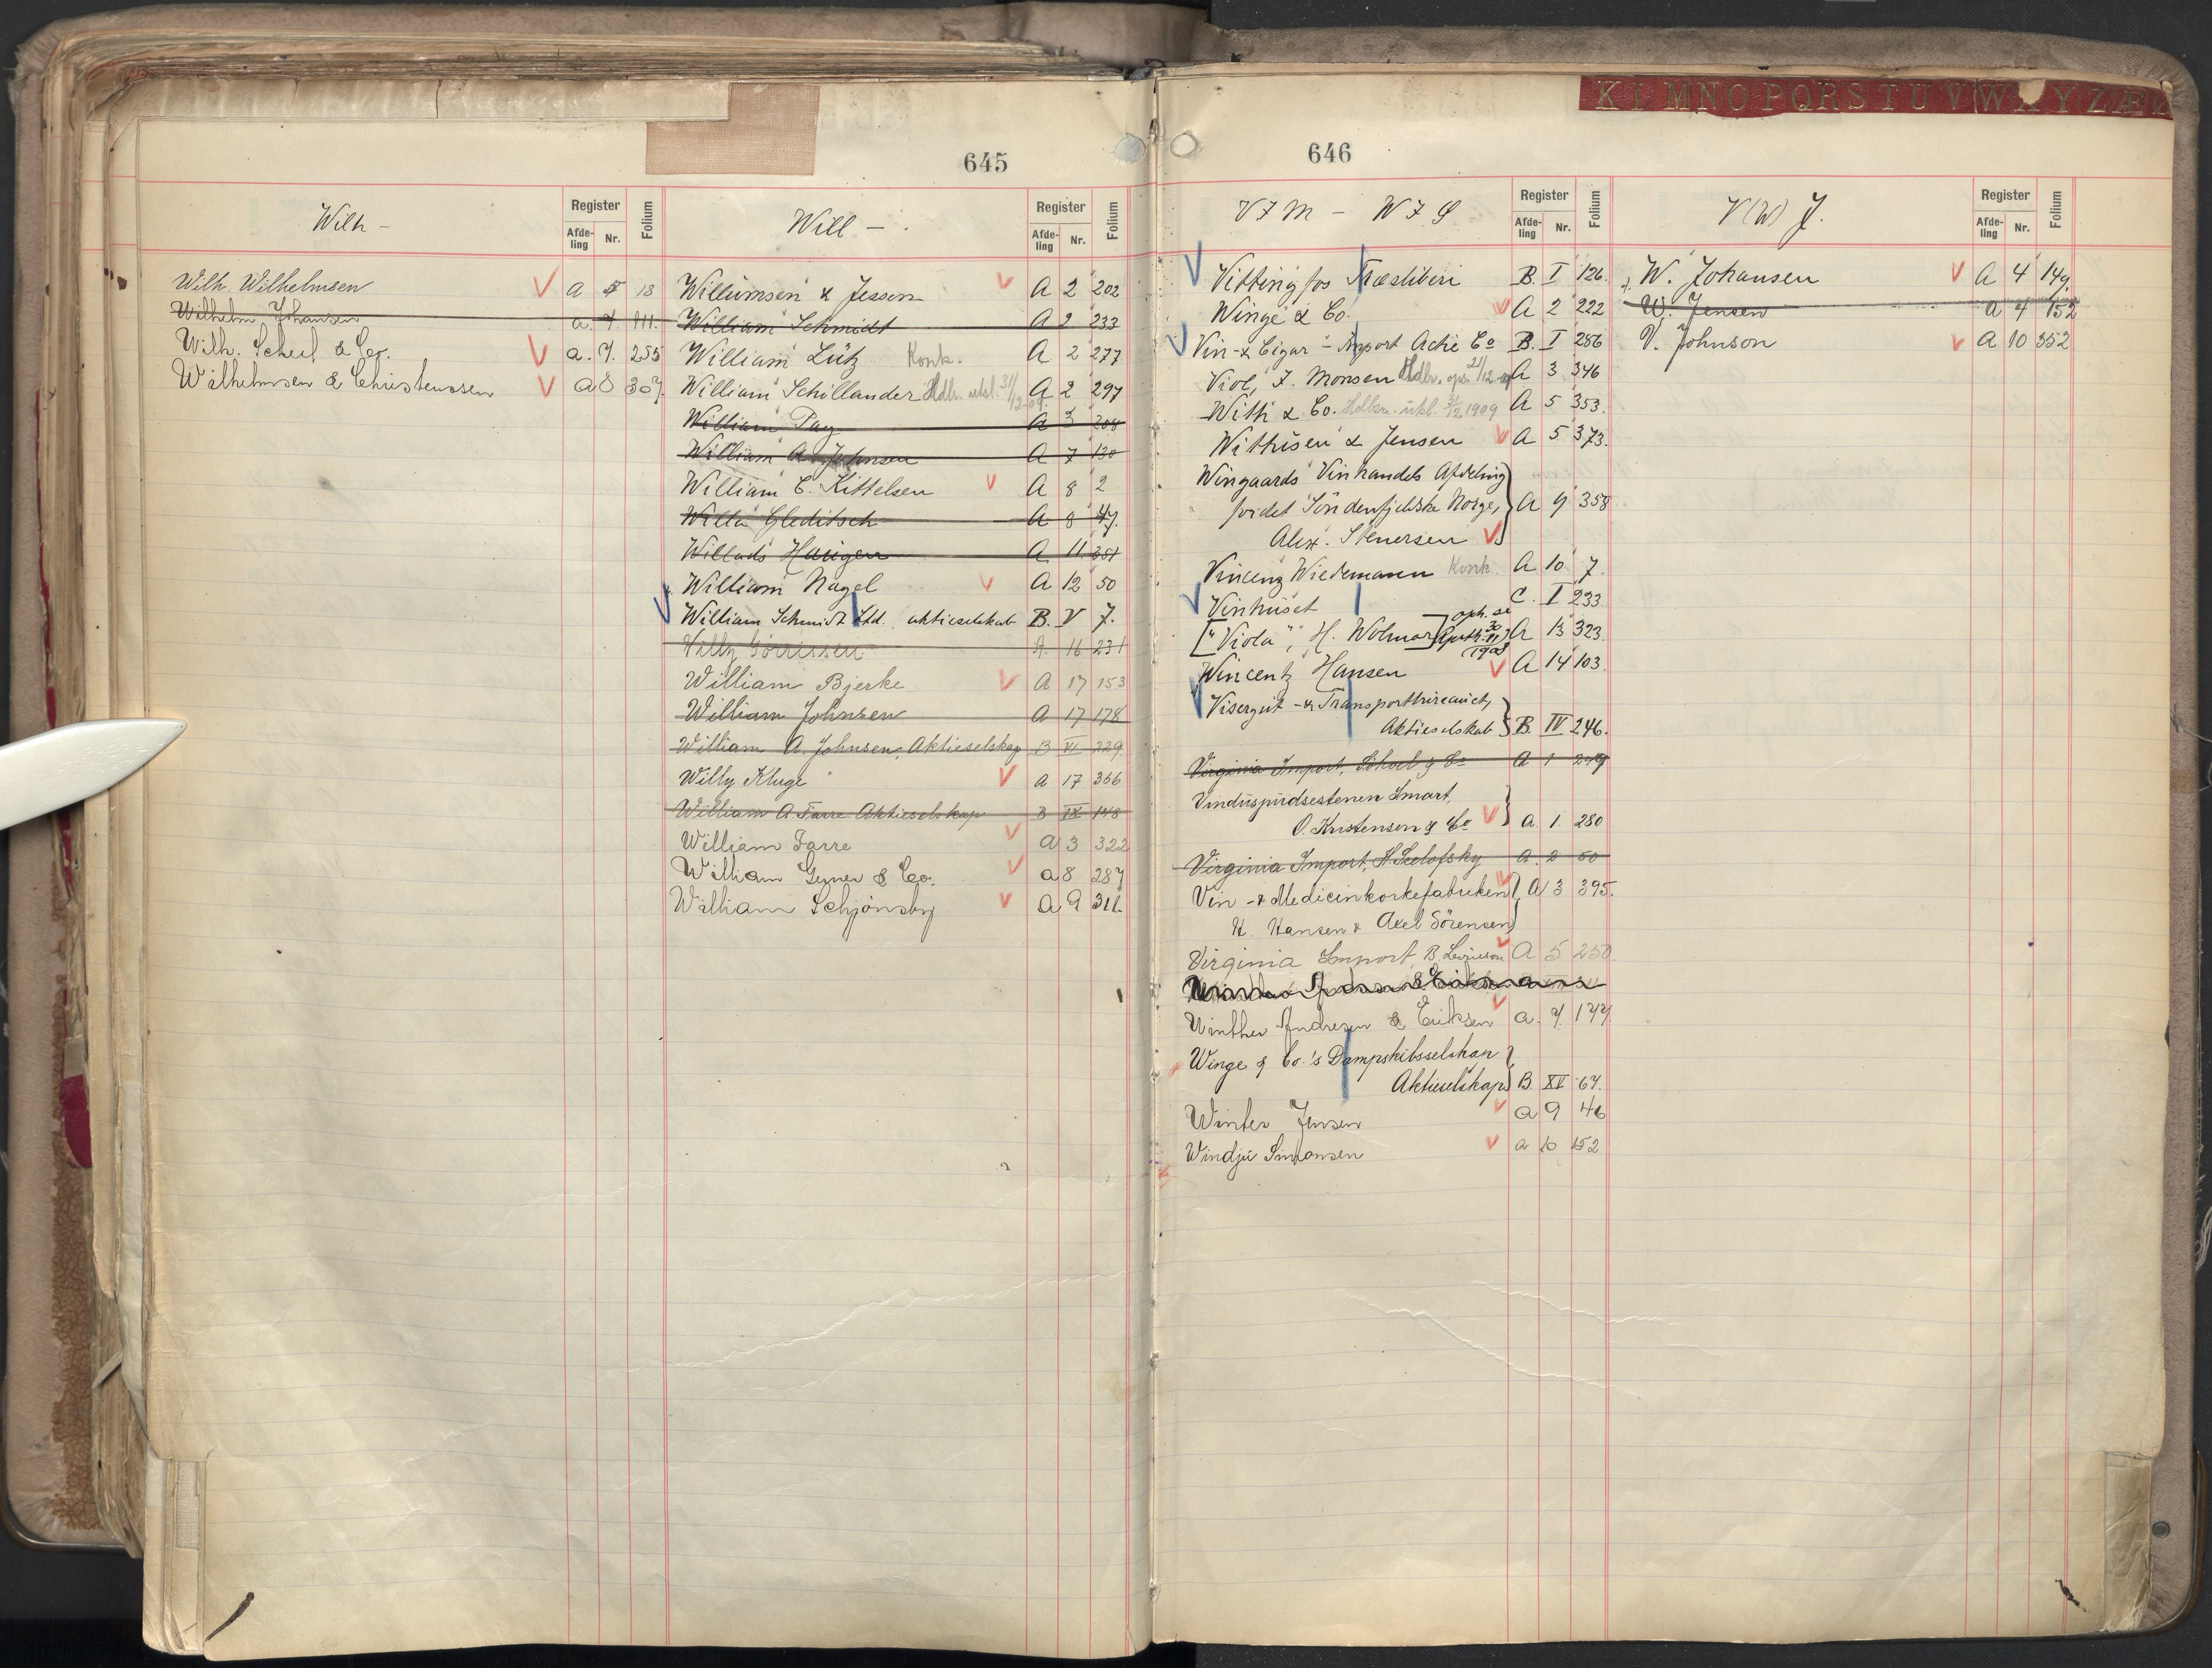 645
Wilh -
Register
Afde-
ling
Nr.
Folium
Wilh. Wilhelmsen V a 5 18
Wilhelm Johansen a. 7. 111.
Wilh. Scheel & Co. V a. 7. 255
Wilhelmsen & Christenssen V a 8 307.
Will -
Register
Afde-
ling
Nr.
Folium
Willumsen & Jessen V A 2 202
William Schmidt A 2 233
William Lütz Konk. A 2 277
William Schillander Hdln. utsl. 31/12-09. A 2 297
William A 3 208
William A. Johnsen A 7 130
William C. Kittelsen V A 8 2
Willa Gleditsch A 8 47.
Willads Haugen A 11 351
William Nagel V A 12 50
William Schmidt Ltd. aktieselskab B. V 7.
Willy Görrissen A. 16 231
William Bjerke V A 17 153
William Johnsen A 17 178
William A. Johnsen, Aktieselskap B VI 229
Willy Kluge V A 17 366
William A Farre Aktieselskap B IX 148
William Farre V A 3 322
William Gyner & Co. V a 8 287
William Schjönsby V a 9 311.
646
K L M N O P Q R S T U V W X Y Z Æ Ø
VIM - WIS
Register
Afde-
ling
Nr.
Folium
Vitting fos Træsliberi B. I 126.
Winge & Co. V A 2 222
Vin- & Cigar - Import Actie Co B. I 286
Viol, J. Monsen Hdln. oph. 21/12-09 A 3 346
With & Co. Hdlsn. utsl. 31/12 1909 A 5 353.
Withusen & Jensen V A 5 373.
Wingaards Vinhandels Afdeling
for det Söndenfjeldske Norge, A 9 358
Alex. Stenersen V
Vincenz Wiedemann Konk. A 10 7.
Vinhuset C. I 233.
["Viola", H. Wolmar] oph. A 13 323.
1908
Wincentz Hansen V A 14 103.
Visergut - & Transportbureauet,
Aktieselskab B. IV 246.
Virginia Import, Sokoel & Co A 1 249
Vinduspudsestenen Smart,
O. Kristensen & Co V A. 1. 280
Virginia Import, H. Seelofsky A. 2 50
Vin - & Medicinkorkefabriken V A 3 395.
H. Hansen & Axel Sörensen
Virginia Import B. Levinson V A 5 250.
Winther Andresen & Eriksen V a. 7. 177.
Winge & Co.'s Dampskibsselskap
Aktieselskap B. XV 67.
Winter Jensen V a 9 46
Windju Simonsen V a 10 152
V(W) J.
Register
Afde-
ling
Nr.
Folium
W. Johansen V A 4 149.
W. Jensen A 4 152
V. Johnson V A 10 352